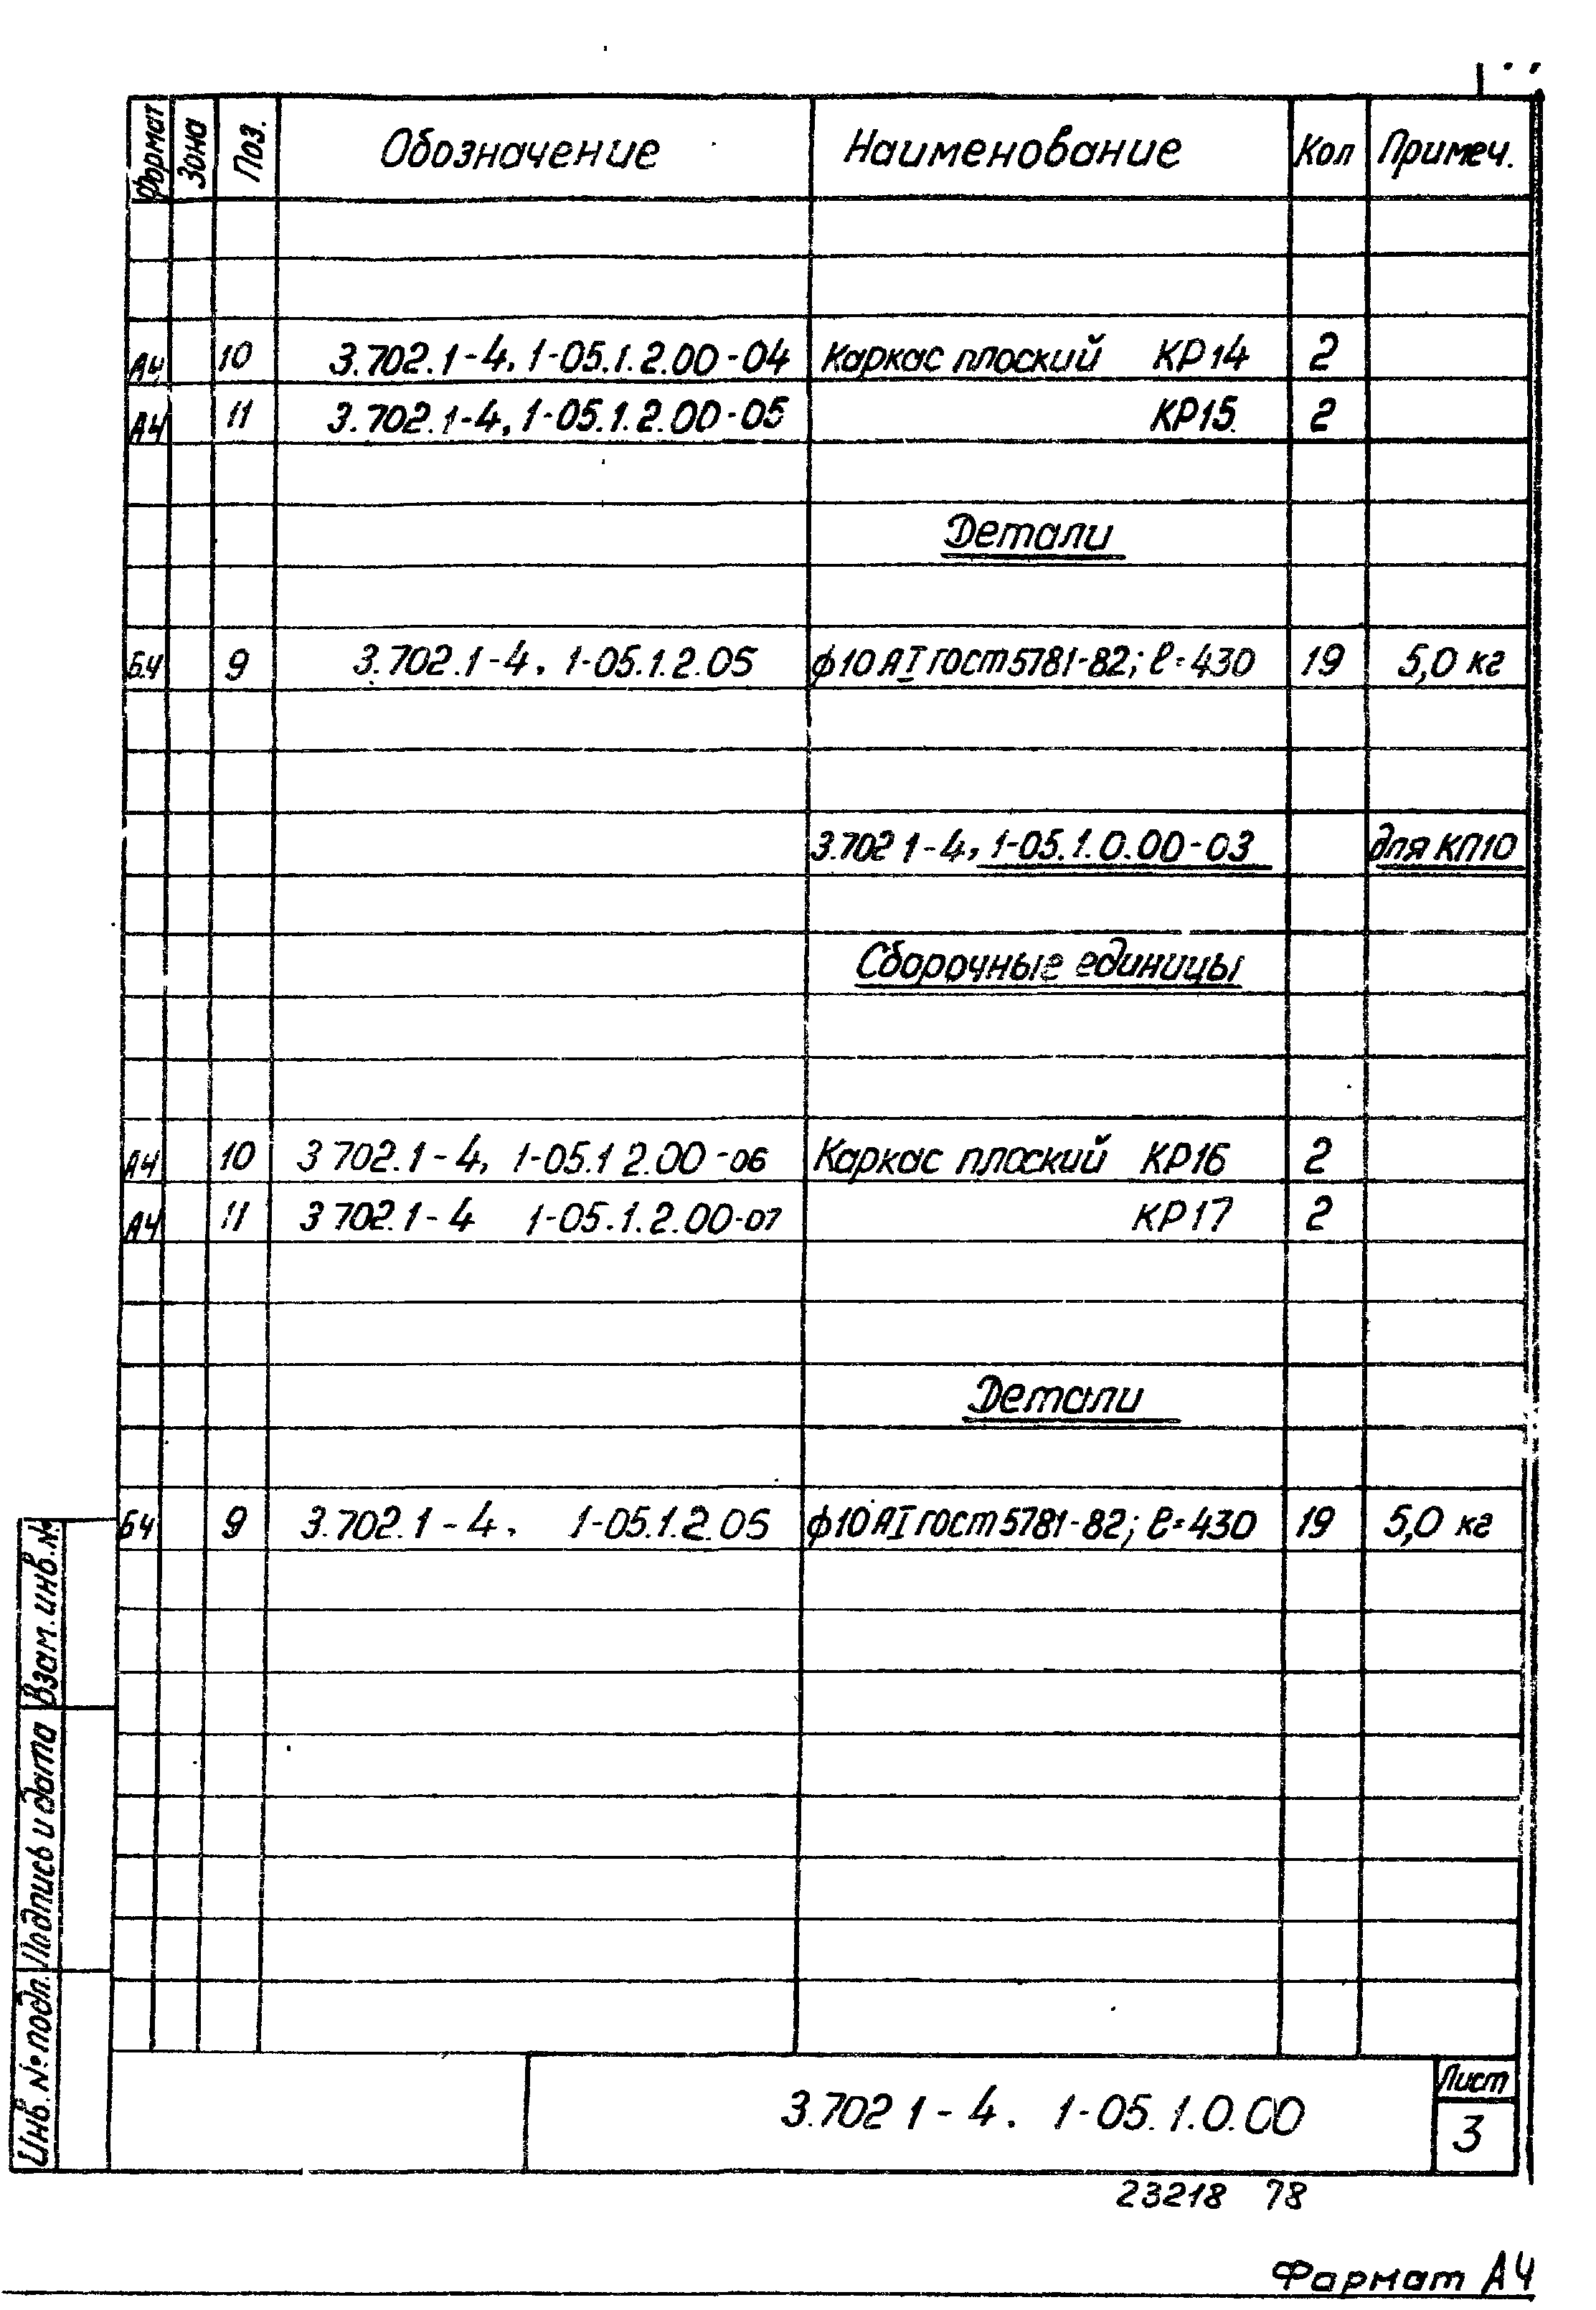 Формат Зона Поз. Обозначение Наименование Кол Примеч.
А4 10 3.702.1-4. 1-05.1.2.00-04 Каркас плоский КР14 2
А4 11 3.702.1-4, 1-05.1.2.00-05 КР15 2
Детали
Б.4 9 3.702.1-4. 1-05.1.2.05 ф10АI ГОСТ5781-82; ℓ=430 19 5,0 кг
3.702 1-4, 1-05.1.0.00-03 для КП10
Сборочные единицы
А4 10 3 702.1-4, 1-05.1 2.00-06 Каркас плоский КР16 2
А4 11 3 702.1-4 1-05.1.2.00-07 КР17 2
Детали
Б4 9 3.702.1-4. 1-05.1.2.05 ф10АI ГОСТ5781-82; ℓ=430 19 5,0 кг
Взам. инв. №
Подпись и дата
Инв. № подл.
3.702 1-4. 1-05.1.0.00
Лист
3
23218 78
Формат А4